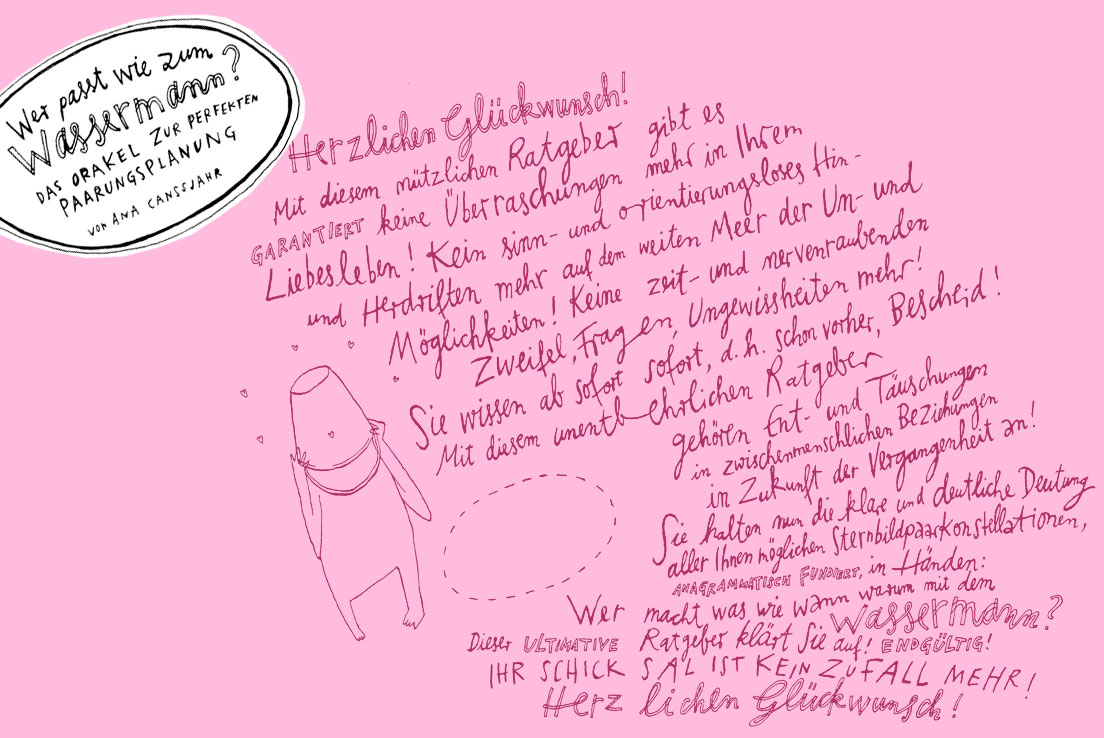 Wer passt wie zum
Wassermann?
DAS ORAKEL ZUR PERFEKTEN
PAARUNGSPLANUNG
von ANA CANSSJAHR
Herzlichen Glückwunsch!
Mit diesem nützlichen Ratgeber gibt es
GARANTIERT keine Überraschungen mehr in Ihrem
Liebesleben! Kein sinn- und orientierungsloses Hin-
und Herdriften mehr auf dem weiten Meer der Um- und
Möglichkeiten! Keine zeit- und nervenraubenden
Zweifel, Fragen, Ungewissheiten mehr!
Sie wissen ab sofort sofort, d.h. schon vorher, Bescheid!
Mit diesem unentb-ehrlichen Ratgeber
gehören Ent- und Täuschungen
in zwischenmenschlichen Beziehungen
in Zukunft der Vergangenheit an!
Sie halten nun die klare und deutliche Deutung
aller Ihnen möglichen Sternbildpaarkonstellationen,
ANAGRAMMATISCH FUNDIERT, in Händen:
Wer macht was wie wann warum mit dem
Wassermann?
Dieser ULTIMATIVE Ratgeber klärt Sie auf! ENDGÜLTIG!
IHR SCHICK SAL IST KEIN ZUFALL MEHR!
Herz lichen Glückwunsch!